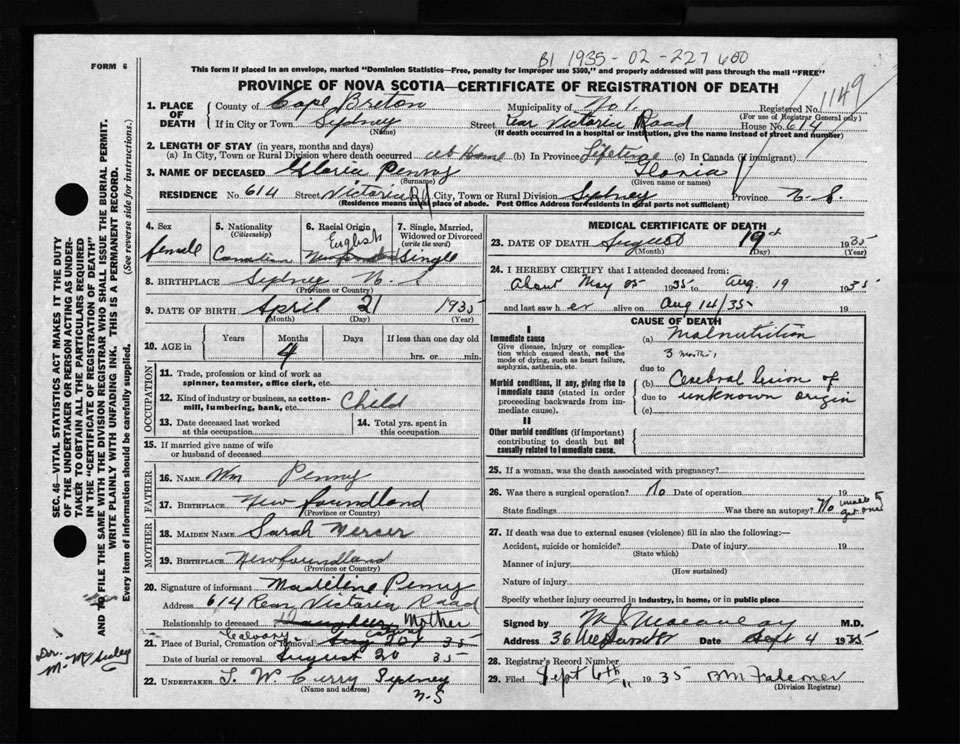 B1 1935-02-227600
FORM 6
This form if placed in an envelope, marked "Dominion Statistics—Free, penalty for improper use $300," and properly addressed will pass through the mail "FREE"
PROVINCE OF NOVA SCOTIA—CERTIFICATE OF REGISTRATION OF DEATH
1149
1. PLACE OF DEATH
County of Cape Breton (Name) Municipality of No 1. Registered No.
(For use of Registrar General only)
If in City or Town Sydney Street rear Victoria Road House No. 614
(If death occurred in a hospital or institution, give the name instead of street and number)
2. LENGTH OF STAY (in years, months and days)
(a) In City, Town or Rural Division where death occurred at Home (b) In Province Lifetime (c) In Canada (if immigrant)
3. NAME OF DECEASED Gloria Penny Gloria
(Surname) (Given name or names)
RESIDENCE No. 614 Street Victoria Rd City, Town or Rural Division Sydney Province N. S.
(Residence means usual place of abode. Post Office Address for residents in rural parts not sufficient)
4. Sex female
5. Nationality (Citizenship) Canadian
6. Racial Origin English
7. Single, Married, Widowed or Divorced (write the word) Single
8. BIRTHPLACE Sydney N. S
(Province or Country)
9. DATE OF BIRTH April 21 1935
(Month) (Day) (Year)
10. AGE in Years Months Days If less than one day old
4 hrs. or min.
OCCUPATION
11. Trade, profession or kind of work as spinner, teamster, office clerk, etc.
12. Kind of industry or business, as cotton-mill, lumbering, bank, etc. Child
13. Date deceased last worked at this occupation
14. Total yrs. spent in this occupation
15. If married give name of wife or husband of deceased
FATHER
16. NAME Wm Penny
17. BIRTHPLACE New foundland
(Province or Country)
MOTHER
18. MAIDEN NAME Sarah Mercer
19. BIRTHPLACE Newfoundland
(Province or Country)
20. Signature of informant Madeline Penny
Address 614 Rear Victoria Road
Relationship to deceased Daughter Mother
21. Place of Burial, Cremation or Removal Calvary Aug 20 35
Date of burial or removal August 20 35
22. UNDERTAKER T. W Curry Sydney
(Name and address) N-S
MEDICAL CERTIFICATE OF DEATH
23. DATE OF DEATH August 19th 1935
(Month) (Day) (Year)
24. I HEREBY CERTIFY that I attended deceased from:
About May 25 1935 to Aug. 19 1935
and last saw her alive on Aug 14/35 19
CAUSE OF DEATH
I
Immediate cause
Give disease, injury or complication which caused death, not the mode of dying, such as heart failure, asphyxia, asthenia, etc.
(a) Malnutrition
3 months,
due to
Morbid conditions, if any, giving rise to immediate cause (stated in order proceeding backwards from immediate cause).
(b) Cerebral lesion of
due to unknown origin
(c)
II
Other morbid conditions (if important) contributing to death but not causally related to immediate cause.
25. If a woman, was the death associated with pregnancy?
26. Was there a surgical operation? No Date of operation 19
State findings Was there an autopsy? No unable to get one
27. If death was due to external causes (violence) fill in also the following:—
Accident, suicide or homicide? Date of injury 19
(State which)
Manner of injury
(How sustained)
Nature of injury
Specify whether injury occurred in industry, in home, or in public place
Signed by M. J Macaulay M.D.
Address 36 Date Sept 4 1935
28. Registrar's Record Number
29. Filed Sept 6th 1935 BM Falconer
(Division Registrar)
SEC. 46—VITAL STATISTICS ACT MAKES IT THE DUTY
OF THE UNDERTAKER OR PERSON ACTING AS UNDER-
TAKER TO OBTAIN ALL THE PARTICULARS REQUIRED
IN THE "CERTIFICATE OF REGISTRATION OF DEATH"
AND TO FILE THE SAME WITH THE DIVISION REGISTRAR WHO SHALL ISSUE THE BURIAL PERMIT.
WRITE PLAINLY WITH UNFADING INK. THIS IS A PERMANENT RECORD.
Every item of information should be carefully supplied. (See reverse side for instructions.)
Dr.